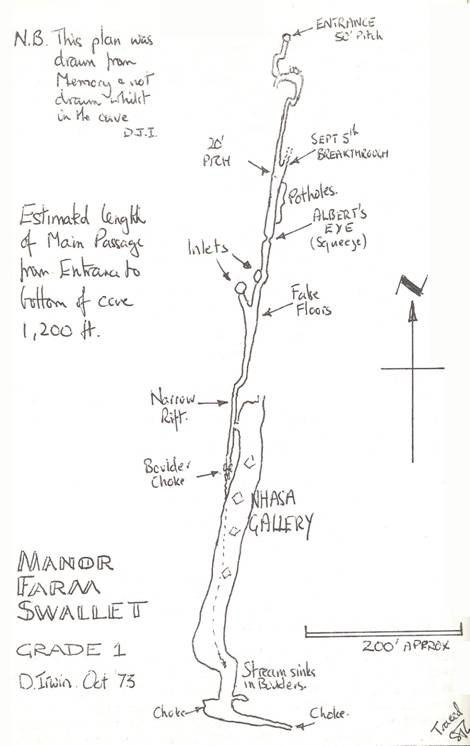 N.B. This plan was
drawn from
Memory & not
drawn whilst
in the cave
D.J.I.
ENTRANCE
50' Pitch
20'
PITCH
SEPT 5th
BREAKTHROUGH
Potholes.
ALBERT'S
EYE
(Squeeze)
Estimated length
of Main Passage
from Entrance to
bottom of cave
1,200 ft.
Inlets
False
Floors
N
Narrow
Rift.
Boulder
Choke
NHASA
GALLERY
MANOR
FARM
SWALLET
GRADE 1
D. Irwin. Oct '73
200' APPROX
Stream sinks
in Boulders.
Choke
Choke.
Traced